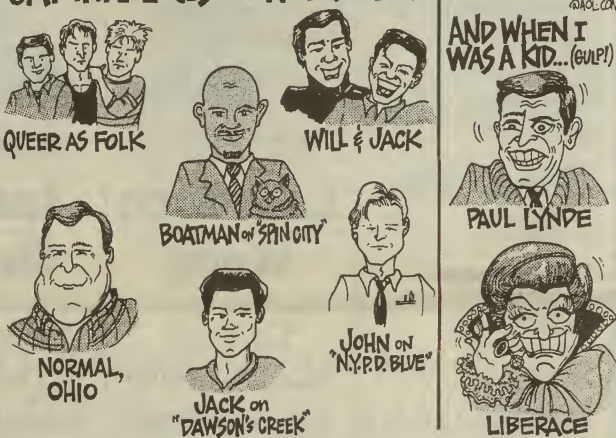 @AOL.COM
QUEER AS FOLK
WILL & JACK
BOATMAN ON "SPIN CITY"
NORMAL,
OHIO
JACK on
"DAWSON'S CREEK"
JOHN ON
"N.Y.P.D. BLUE"
AND WHEN I
WAS A KID... (GULP!)
PAUL LYNDE
LIBERACE